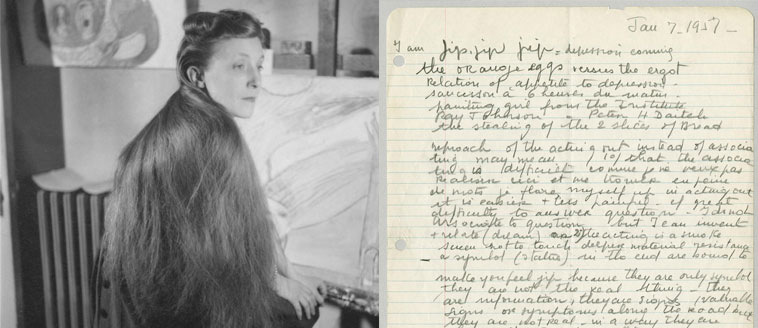 Jan 7 - 1957 -
I am jip. jip jip = depression coming
the orange eggs versus the ergot
Relation of appetite to depression -
saucisson à 6 heures du matin -
painting girl from the Institute
Ray Johnson - Peter H
the stealing of the 2 slices of Bread
reproach of the acting out instead of associa
ting may mean 1°) that the associa
tion is difficult comme je ne veux pas
realiser ceci et me trouve en panne
de mots je force myself up in acting out
it is easier + less painful - if great
difficulty to answer question - I do not
associate to question but I can invent
+ relate (dream) the acting is a smoke
screen not to touch deeper material resistance
a symbol (statue) in the end are bound to
make you feel jip because they are only symbol
they are not the real thing - they
are information, they are signs, valuable
signs or symptomes along the road but
they are not real - in a way they are